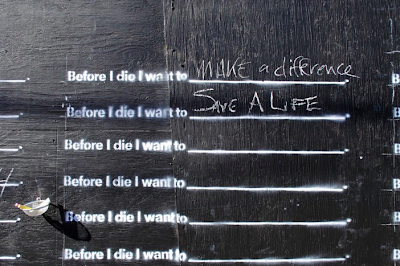 Before I die I want to MAKE a difference.
Before I die I want to SAVE A LIFE.
Before I die I want to .
Before I die I want to .
Before I die I want to .
Before I die I want to .